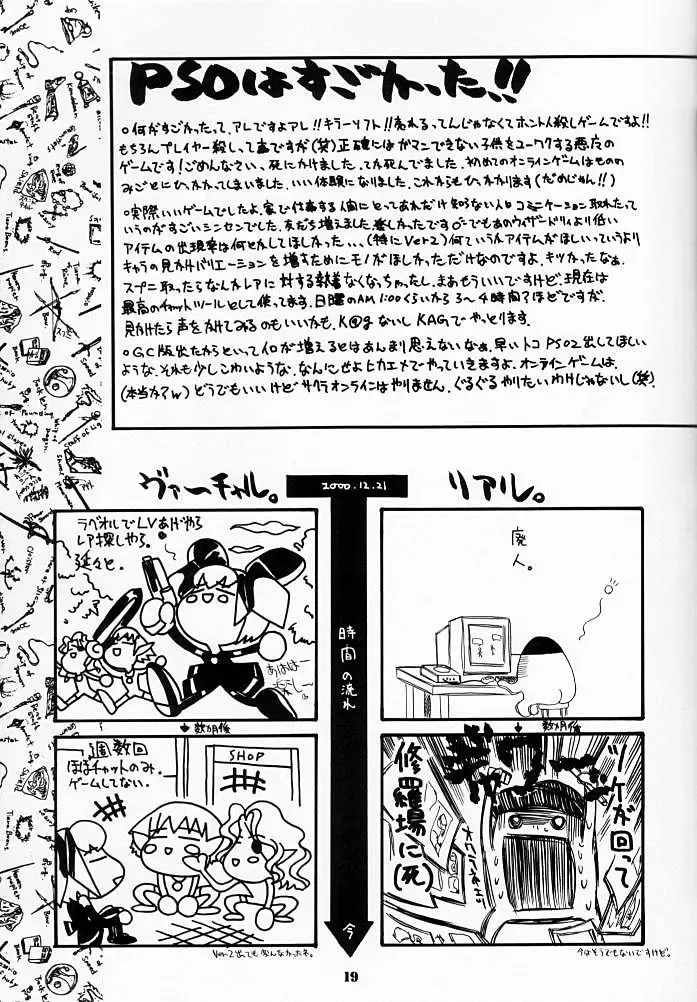 PSOはすごかった!!
○何がすごかったって、アレですよアレ!!キラーソフト!!売れるってんじゃなくてホント人殺しゲームですよ!!
もちろんプレイヤー殺しって事ですが(笑)正確にはガマンできない子供をユーワクする悪魔の
ゲームです!ごめんなさい、死にかけました。てか死んでました。初めてのオンラインゲームはものの
みごとにひっかかってしまいました。いい体験になりました。これからもひっかかります(だめじゃん!!)
○実際いいゲームでしたよ、家で仕事する人間にとってあれだけ知らない人とコミュニケーション取れたって
いうのがすごいシンセンでした。友だち増えました。楽しかったです。でもあのウィザードリィより低い
アイテムの出現率は何とかしてほしかった...(特にVer2)何ていうかアイテムがほしいっていうより
キャラの見かけバリエーションを増すためにモノがほしかっただけなのですよ。キツかったなぁ。
スプニ取ったらなんかレアに対する執着なくなっちゃったし。まあもういいですけど。現在は
最高のチャットツールとして使ってます。日曜のAM1:00くらいから3〜4時間?ほどですが。
見かけたら声をかけてみるのもいいかも。K@gないしKAGでやっとります。
○GC版出たからといってイロが増えるとはあんまり思えないなぁ。早いトコPSO2出してほしい
ような、それも少しこわいような。なんにせよ上カエメでやっていきますよ、オンラインゲームは。
(本当かァw)どうでもいいけどサクラオンラインはやりません。ぐるぐるやりたいわけじゃないし(笑)
ヴァーチャル。
2000.12.21
リアル。
ラベオルでLVあげやろ
レア探しやろ。
延々と。
あはは
時間の流れ
廃人。
数ヵ月後
数ヵ月後
週数回
ほぼチャットのみ。
ゲームしてない。
SHOP
ツケが回って
修羅場に(死)
今
Ver.2出ても変んなかったネ。
今はそうでもないですけど。
19